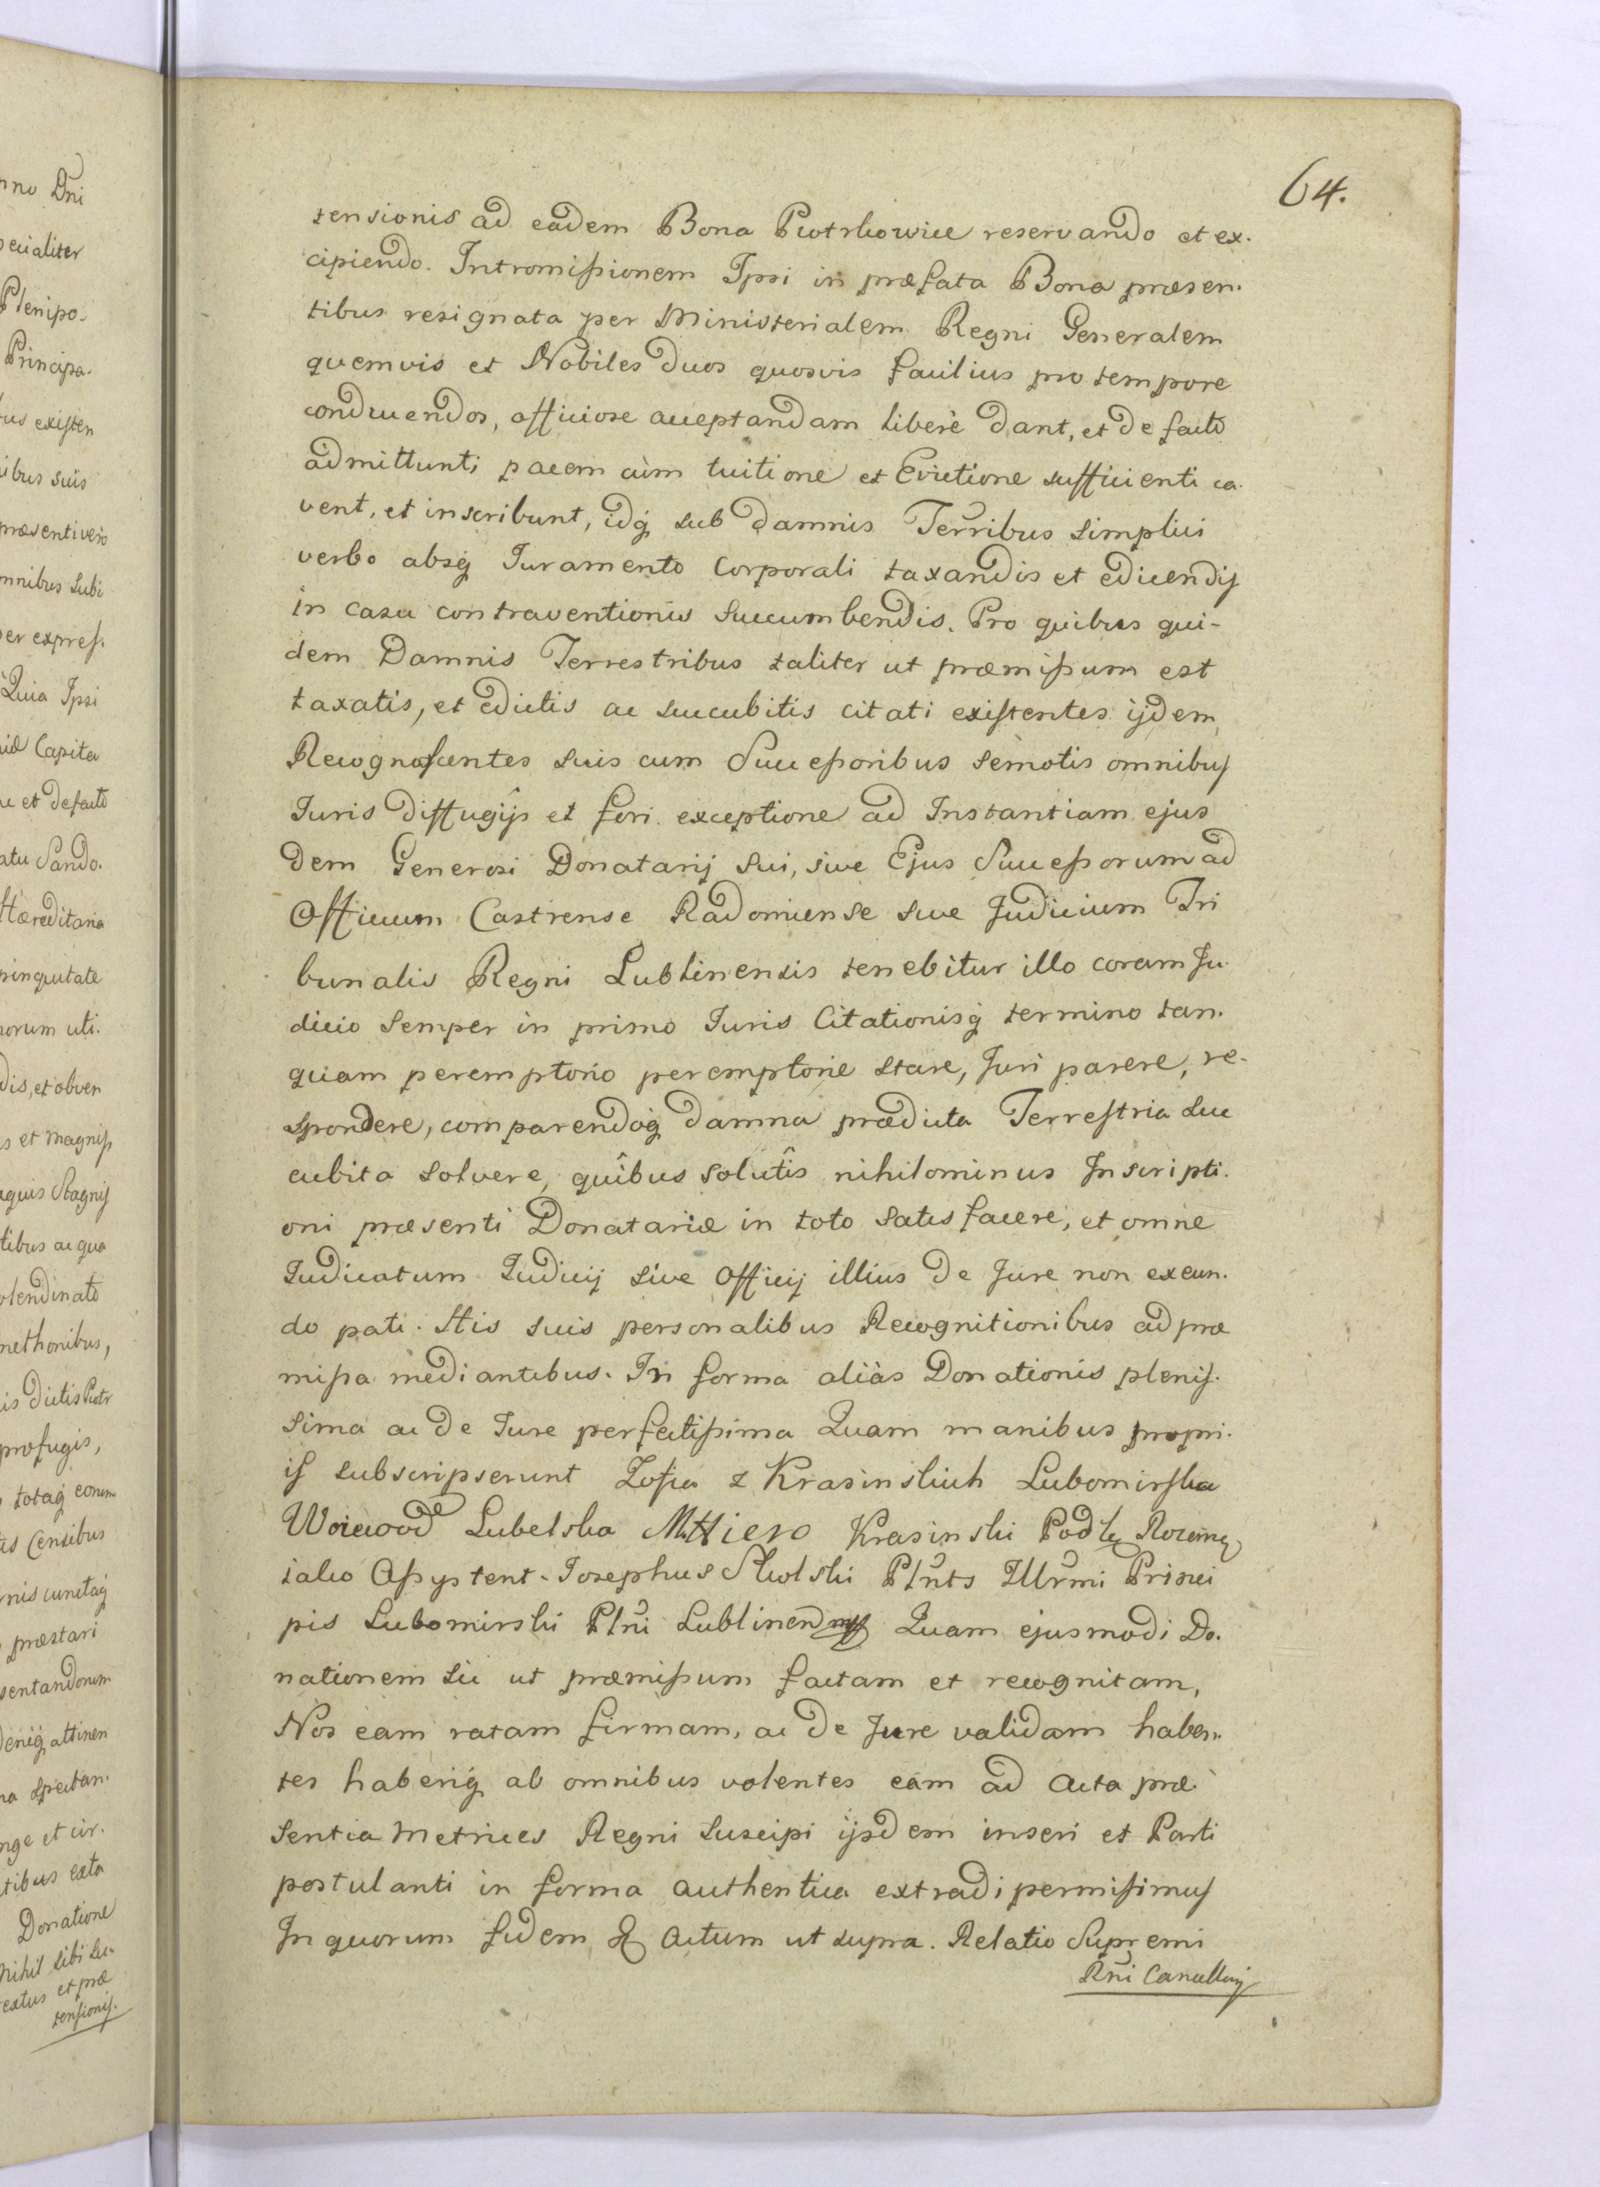 64.
tensionis ad eadem Bona Piotrkowice reservando et ex-
cipiendo. Intromissionem Ipsi in præfata Bona præsen-
tibus resignata per Ministerialem Regni Generalem
quemvis et Nobiles duos quosvis facilius pro tempore
conducendos, officiose acceptandam liberè dant, et de facto
admittunt; pacem cùm tuitione et Evictione sufficienti ca-
vent, et inscribunt, idq sub damnis Terribus simplici
verbo absq Juramento Corporali taxandis et edicendis
in casu contraventionis succumbendis. Pro quibus qui-
dem Damnis Terrestribus taliter ut præmissum est
taxatis, et edictis ac succubitis citati existentes ijdem
Recognoscentes suis cum Successoribus semotis omnibus
Juris diffugijs et fori exceptione ad Instantiam ejus
dem Generosi Donatarij sui, sive Ejus Successorum ad
Officium Castrense Radomiense sive Judicium Tri
bunalis Regni Lublinensis tenebitur illo coram Ju-
dicio semper in primo Juris Citationisq termino tan-
quam peremptorio peremptorie stare, Juri parere, re-
spondere, comparendoq damna prædicta Terrestria suc
cubita solvere, quîbus solutîs nihilominus Inscripti-
oni præsenti Donatariæ in toto satisfacere, et omne
Judicatum Judicij sive Officij illius de Jure non exeun-
do pati. His suis personalibus Recognitionibus ad præ
missa mediantibus. In forma aliàs Donationis plenis-
sima ac de Jure perfectissima Quam manibus propri-
is subscripserunt Zofia z Krasinskich Lubomirska
Woiewod Lubelska Krasinski Podk Rozem
iako Assystent. Josephus Skolski Plnts Illrmi Princi
pis Lubomirski Plni Lublinen Quam ejusmodi Do-
nationem sic ut præmissum factam et recognitam,
Nos eam ratam firmam, ac de Jure validam haben-
tes haberiq ab omnibus volentes eam ad Acta præ-
sentia Metrices Regni suscipi ijsdem inseri et Parti
postulanti in forma authentica extradi permisimus
In quorum fidem & Actum ut supra. Relatio Supremi
Rni Cancellarij